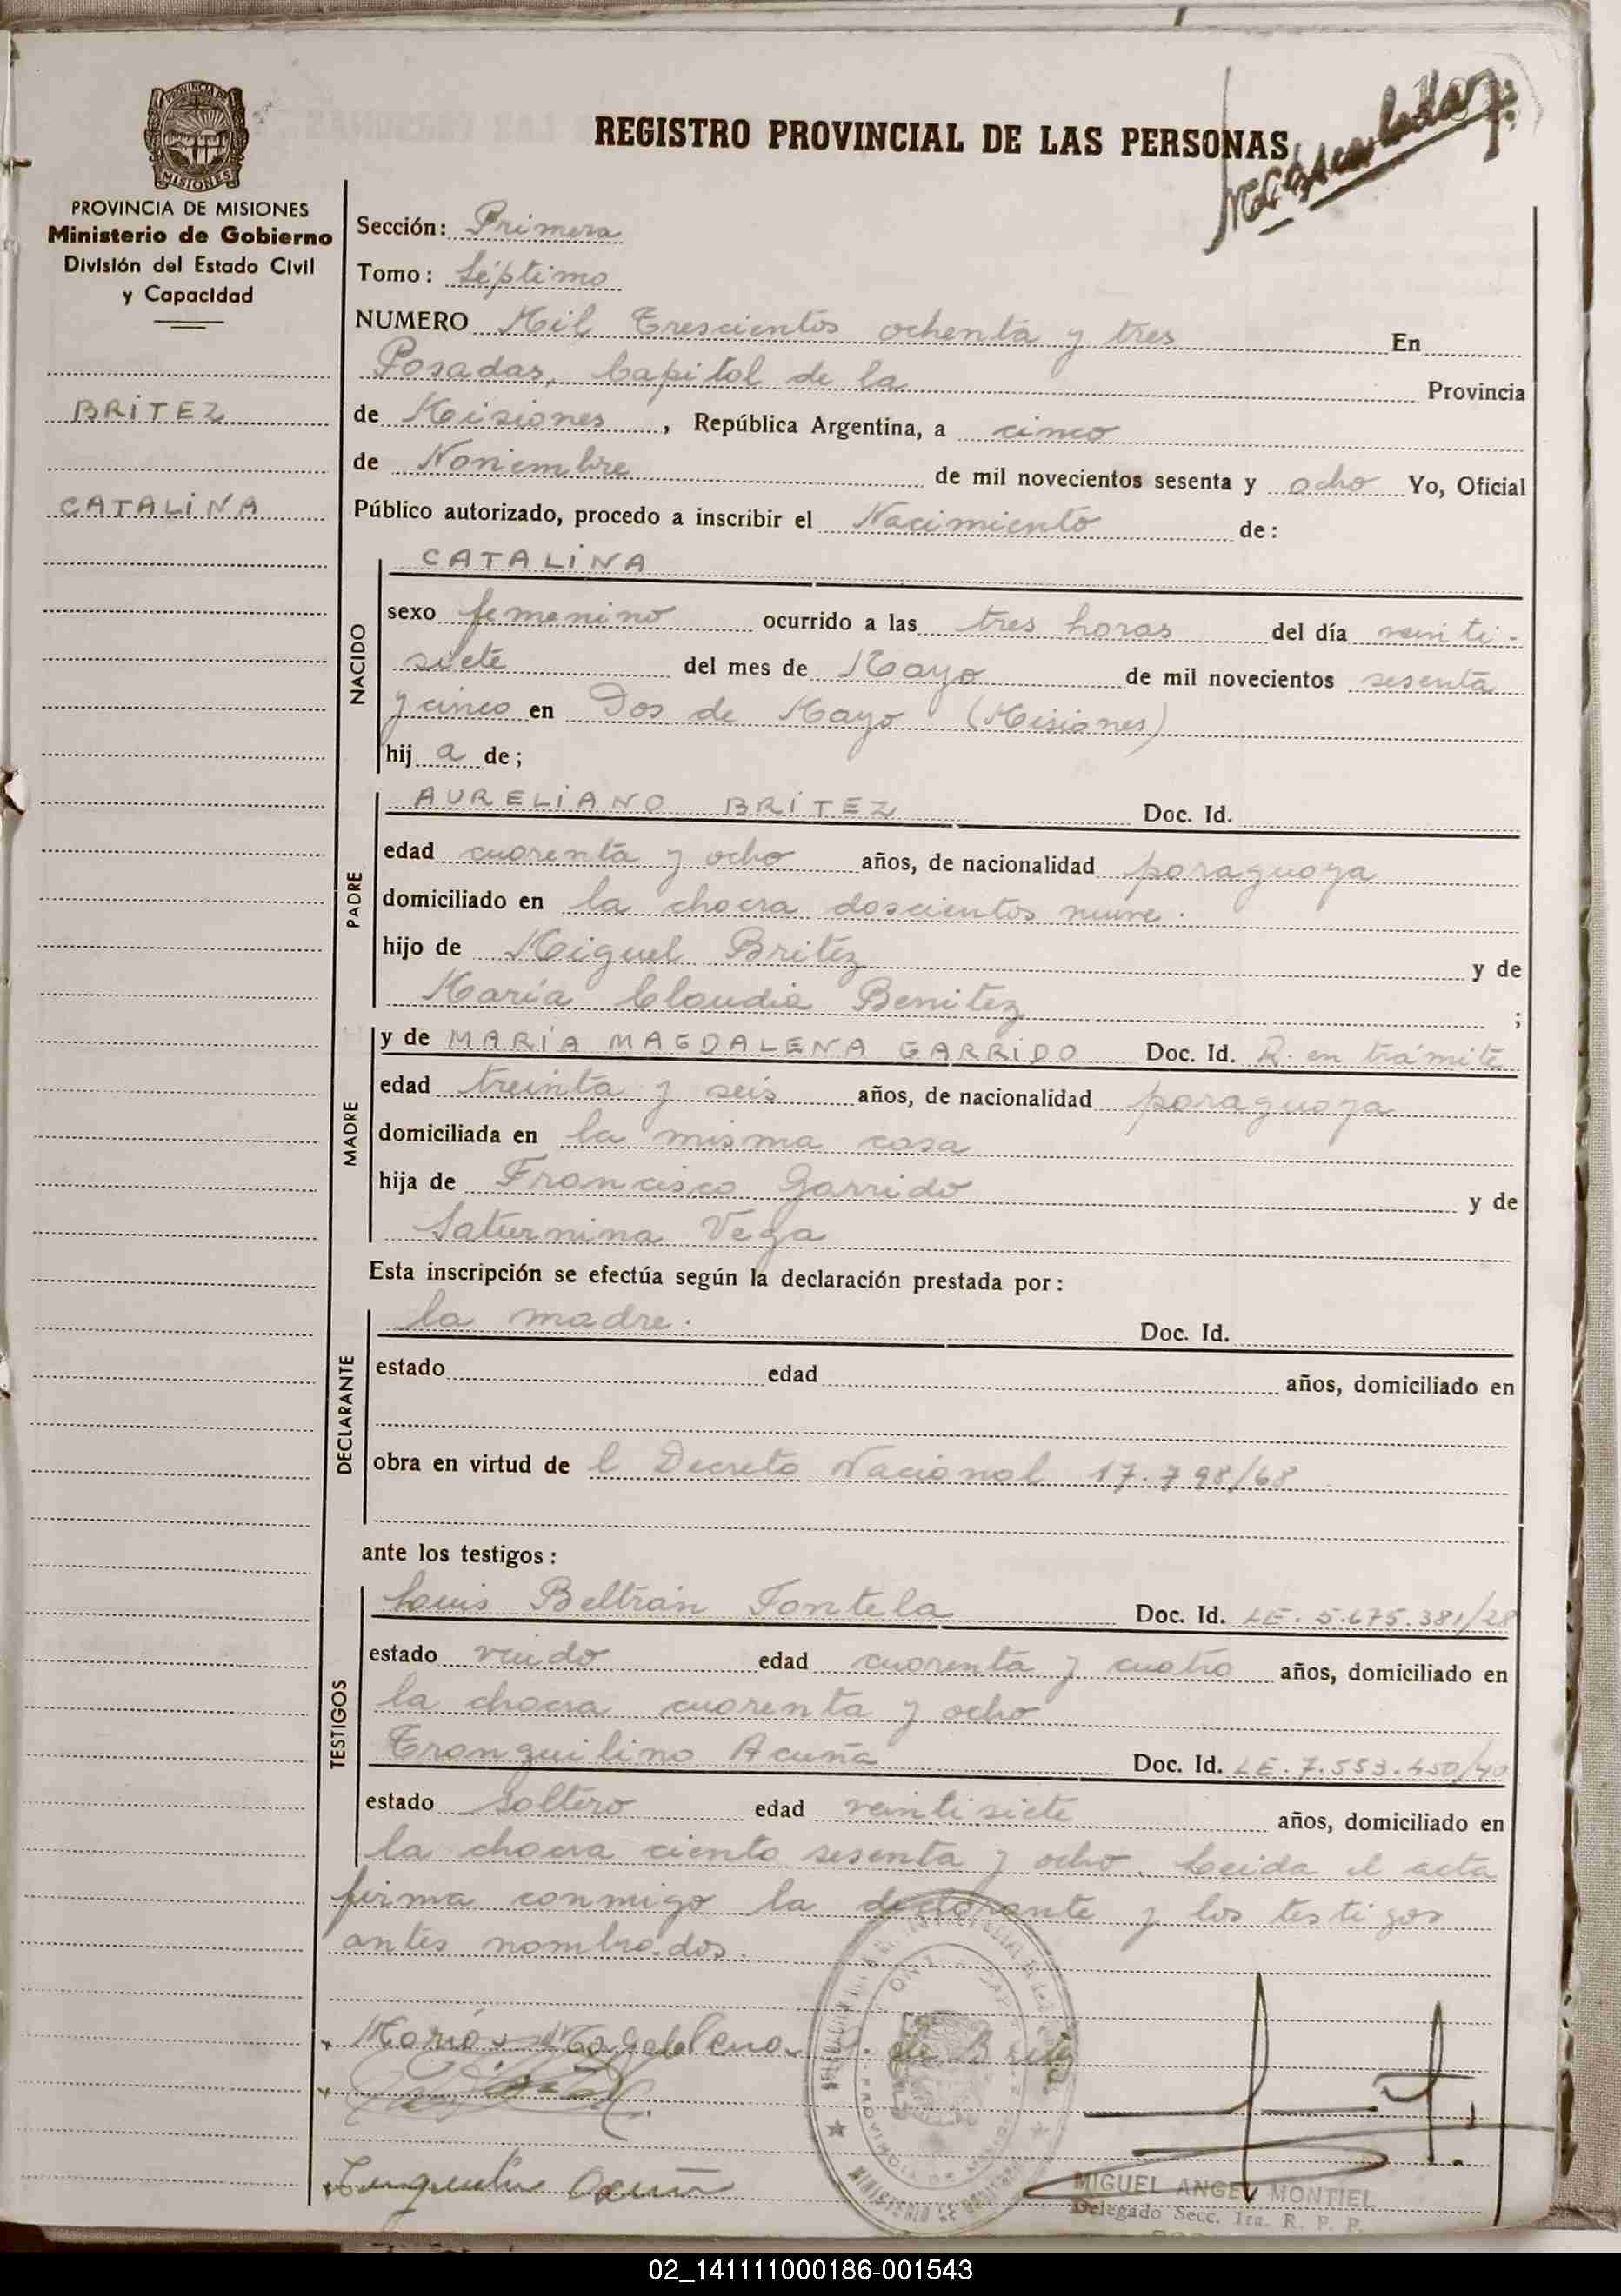 REGISTRO PROVINCIAL DE LAS PERSONAS
PROVINCIA DE MISIONES
MISIONES
PROVINCIA DE MISIONES
Ministerio de Gobierno
División del Estado Civil
y Capacidad
BRÍTEZ
CATALINA
Sección: Primera
Tomo: Séptimo
NUMERO Mil Trescientos ochenta y tres En
Posadas, Capital de la Provincia
de Misiones, República Argentina, a cinco
de Noviembre de mil novecientos sesenta y ocho Yo, Oficial
Público autorizado, procedo a inscribir el Nacimiento de:
NACIDO
CATALINA
sexo femenino ocurrido a las tres horas del día veinti-
siete del mes de Mayo de mil novecientos sesenta
y cinco en Dos de Mayo (Misiones)
hij a de;
PADRE
AURELIANO BRÍTEZ Doc. Id.
edad cuarenta y ocho años, de nacionalidad paraguaya
domiciliado en la chacra doscientos nueve.
hijo de Miguel Britez y de
María Claudia Benitez ;
MADRE
y de MARÍA MAGDALENA GARRIDO Doc. Id. R. en trámite
edad treinta y seis años, de nacionalidad paraguaya
domiciliada en la misma casa
hija de Francisco Garrido y de
Saturnina Vega
Esta inscripción se efectúa según la declaración prestada por:
DECLARANTE
la madre. Doc. Id.
estado edad años, domiciliado en
obra en virtud de l Decreto Nacional 17.798/68
ante los testigos:
TESTIGOS
Louis Beltrán Fontela Doc. Id. LE. 5.675.381/28
estado viudo edad cuarenta y cuatro años, domiciliado en
la chacra cuarenta y ocho
Tranquilino Acuña Doc. Id. LE. 7.553.450/40
estado Soltero edad veintisiete años, domiciliado en
la chacra ciento sesenta y ocho. Leida el acta
firma conmigo la declarante y los testigos
antes nombrados.
María Magdalena G. de Britez
Acuña
MIGUEL ANGEL MONTIEL
Delegado Secc. 1ra. R. P. P.
02_141111000186-001543